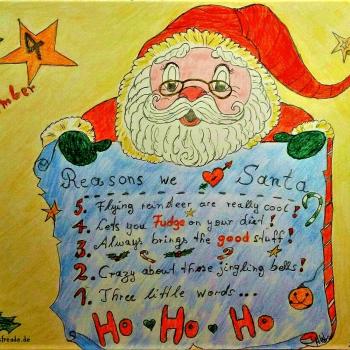 4
mber
Reasons we Santa
5. Flying reindeer are really cool!
4. Lets you Fudge on your diet!
3. Always brings the good stuff!
2. Crazy about those jingling bells!
1. Three little words...
Ho Ho Ho